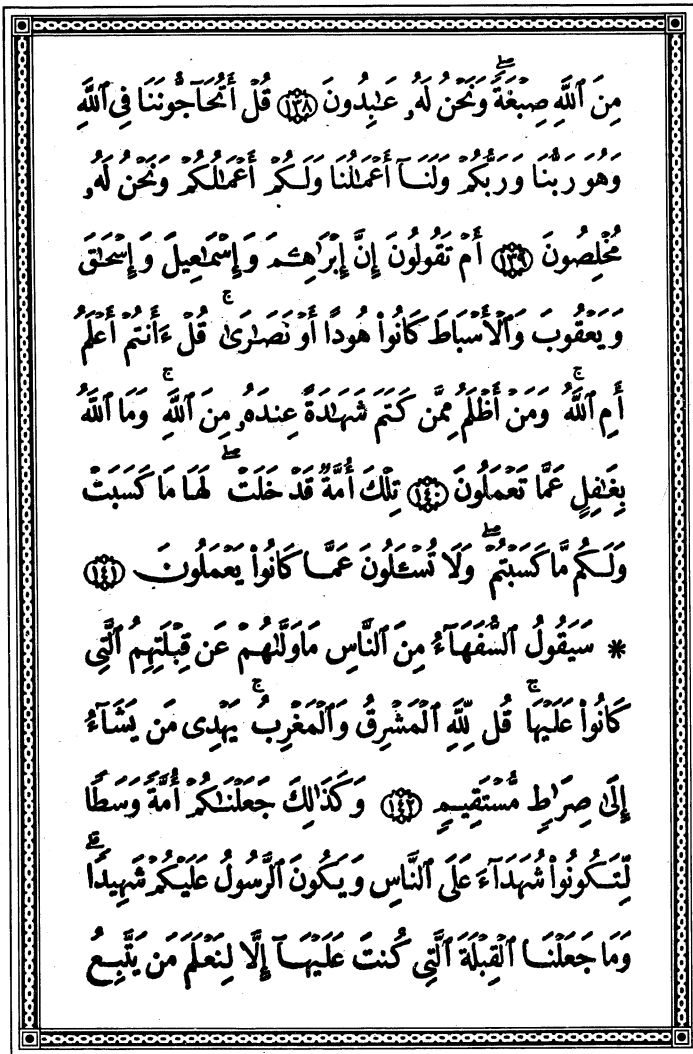 مِنَ ٱللَّهِ صِبْغَةً ۖ وَنَحْنُ لَهُۥ عَـٰبِدُونَ ﴿١٣٨﴾ قُلْ أَتُحَآجُّونَنَا فِى ٱللَّهِ
وَهُوَ رَبُّنَا وَرَبُّكُمْ وَلَنَآ أَعْمَـٰلُنَا وَلَكُمْ أَعْمَـٰلُكُمْ وَنَحْنُ لَهُۥ
مُخْلِصُونَ ﴿١٣٩﴾ أَمْ تَقُولُونَ إِنَّ إِبْرَٰهِـۧمَ وَإِسْمَـٰعِيلَ وَإِسْحَـٰقَ
وَيَعْقُوبَ وَٱلْأَسْبَاطَ كَانُوا۟ هُودًا أَوْ نَصَـٰرَىٰ ۗ قُلْ ءَأَنتُمْ أَعْلَمُ
أَمِ ٱللَّهُ ۗ وَمَنْ أَظْلَمُ مِمَّن كَتَمَ شَهَـٰدَةً عِندَهُۥ مِنَ ٱللَّهِ ۗ وَمَا ٱللَّهُ
بِغَـٰفِلٍ عَمَّا تَعْمَلُونَ ﴿١٤٠﴾ تِلْكَ أُمَّةٌ قَدْ خَلَتْ ۖ لَهَا مَا كَسَبَتْ
وَلَكُم مَّا كَسَبْتُمْ ۖ وَلَا تُسْـَٔلُونَ عَمَّا كَانُوا۟ يَعْمَلُونَ ﴿١٤١﴾
* سَيَقُولُ ٱلسُّفَهَآءُ مِنَ ٱلنَّاسِ مَا وَلَّىٰهُمْ عَن قِبْلَتِهِمُ ٱلَّتِى
كَانُوا۟ عَلَيْهَا ۚ قُل لِّلَّهِ ٱلْمَشْرِقُ وَٱلْمَغْرِبُ ۚ يَهْدِى مَن يَشَآءُ
إِلَىٰ صِرَٰطٍ مُّسْتَقِيمٍ ﴿١٤٢﴾ وَكَذَٰلِكَ جَعَلْنَـٰكُمْ أُمَّةً وَسَطًا
لِّتَكُونُوا۟ شُهَدَآءَ عَلَى ٱلنَّاسِ وَيَكُونَ ٱلرَّسُولُ عَلَيْكُمْ شَهِيدًا ۗ
وَمَا جَعَلْنَا ٱلْقِبْلَةَ ٱلَّتِى كُنتَ عَلَيْهَآ إِلَّا لِنَعْلَمَ مَن يَتَّبِعُ